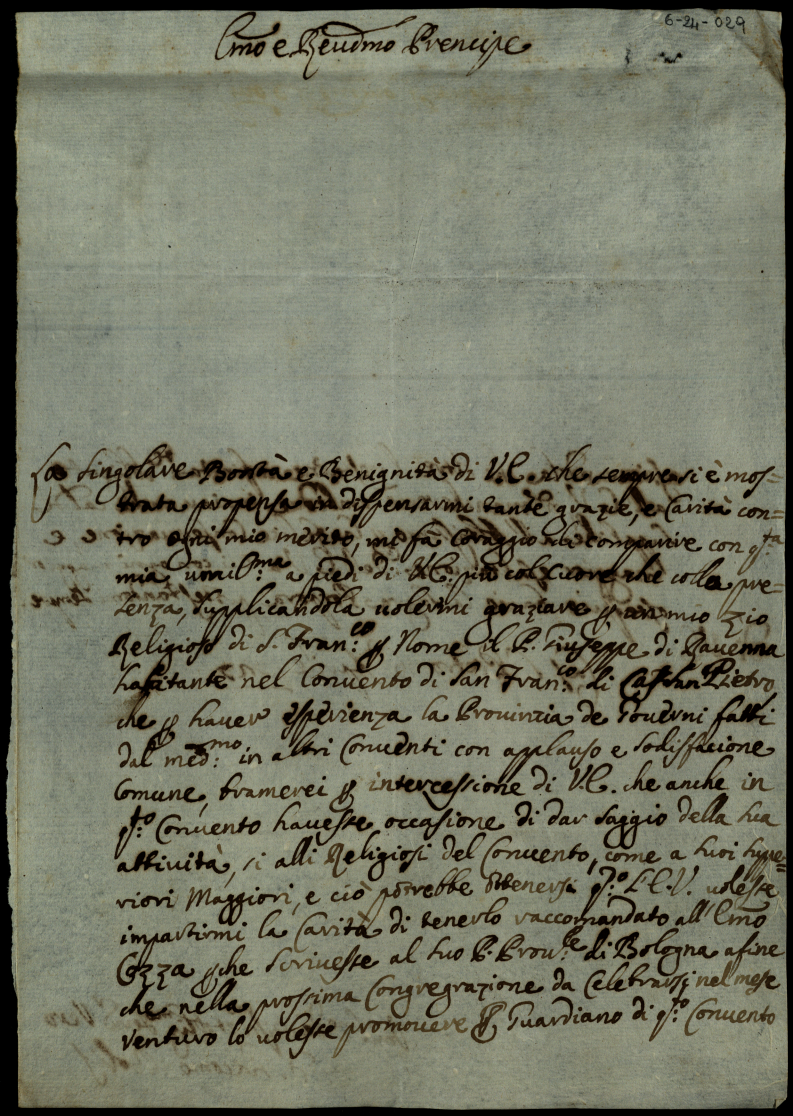 6-24-029
Emo e Reudmo Prencipe
La singolare Bontà e Benignità di V.E. che sempre si è mos-
trata propensa in dispensarmi tante grazie, e Carità con-
tro ogni mio merito, mi fà Coraggio di comparire con q.ta
mia umil.ma a piedi di V.E. più col Cuore che colla pre-
senza, supplicandola uolermi graziare p un mio zio
Religioso di S. Fran.co p Nome il P. Giuseppe di Rauenna
habitante nel Conuento di San Fran.co di Castel San Pietro,
che p hauer esperienza la Prouincia de Gouerni fatti
dal med.mo in altri Conuenti con applauso e sodisfacione
Comune, bramerei p intercessione di V.E. che anche in
q.to Conuento hauesse occasione di dar saggio della sua
attiuità, si alli Religiosi del Conuento, come a suoi supe-
riori Maggiori, e ciò potrebbe ottenersi q.do L'E.V. uolesse
impartirmi la Carità di tenerlo raccomandato all'Emo
Cozza pche scriuesse al suo P. Prou.le di Bologna afine
che nella prossima Congregrazione da Celebrarsi nel mese
venturo lo uolesse promouere p Guardiano di q.to Conuento